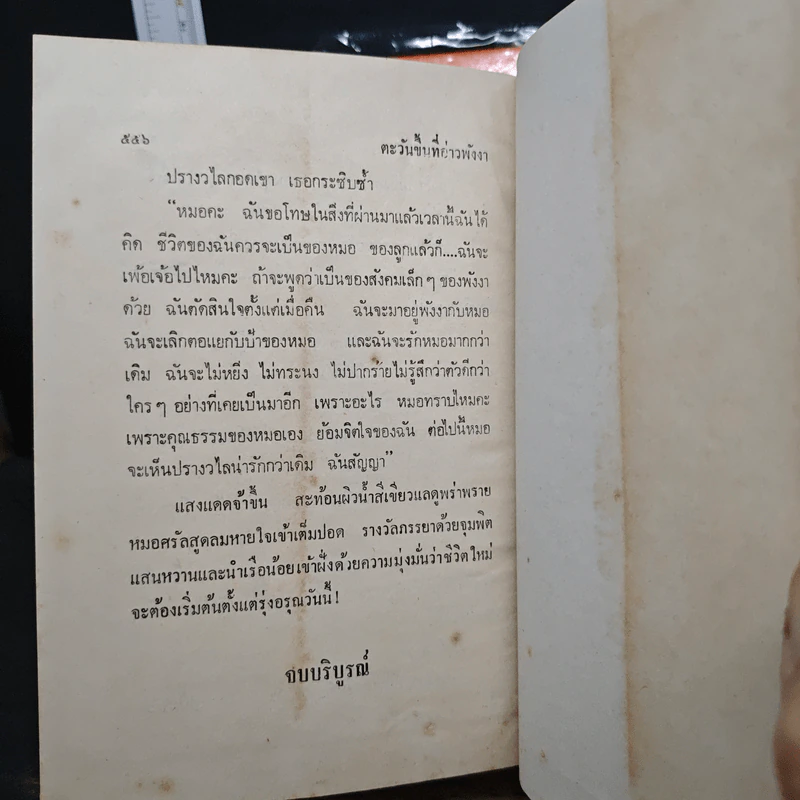 ๕๕๖
ตะวันขึ้นที่อ่าวพังงา
ปรางวไลกอดเขา เธอกระซิบซ้ำ
“หมอคะ ฉันขอโทษในสิ่งที่ผ่านมาแล้วเวลานี้ฉันได้
คิด ชีวิตของฉันควรจะเป็นของหมอ ของลูกแล้วก็....ฉันจะ
เพ้อเจ้อไปไหมคะ ถ้าจะพูดว่าเป็นของสังคมเล็กๆ ของพังงา
ด้วย ฉันตัดสินใจตั้งแต่เมื่อคืน ฉันจะมาอยู่พังงากับหมอ
ฉันจะเลิกตอแยกับป้าของหมอ และฉันจะรักหมอมากกว่า
เดิม ฉันจะไม่หยิ่ง ไม่ทระนง ไม่ปากร้ายไม่รู้สึกว่าตัวดีกว่า
ใครๆ อย่างที่เคยเป็นมาอีก เพราะอะไร หมอทราบไหมคะ
เพราะคุณธรรมของหมอเอง ย้อมจิตใจของฉัน ต่อไปนี้หมอ
จะเห็นปรางวไลน่ารักกว่าเดิม ฉันสัญญา”
แสงแดดจ้าขึ้น สะท้อนผิวน้ำสีเขียวแลดูพร่าพราย
หมอศรัลสูดลมหายใจเข้าเต็มปอด รางวัลภรรยาด้วยจุมพิต
แสนหวานและนำเรือน้อยเข้าฝั่งด้วยความมุ่งมั่นว่าชีวิตใหม่
จะต้องเริ่มต้นตั้งแต่รุ่งอรุณวันนี้!
จบบริบูรณ์